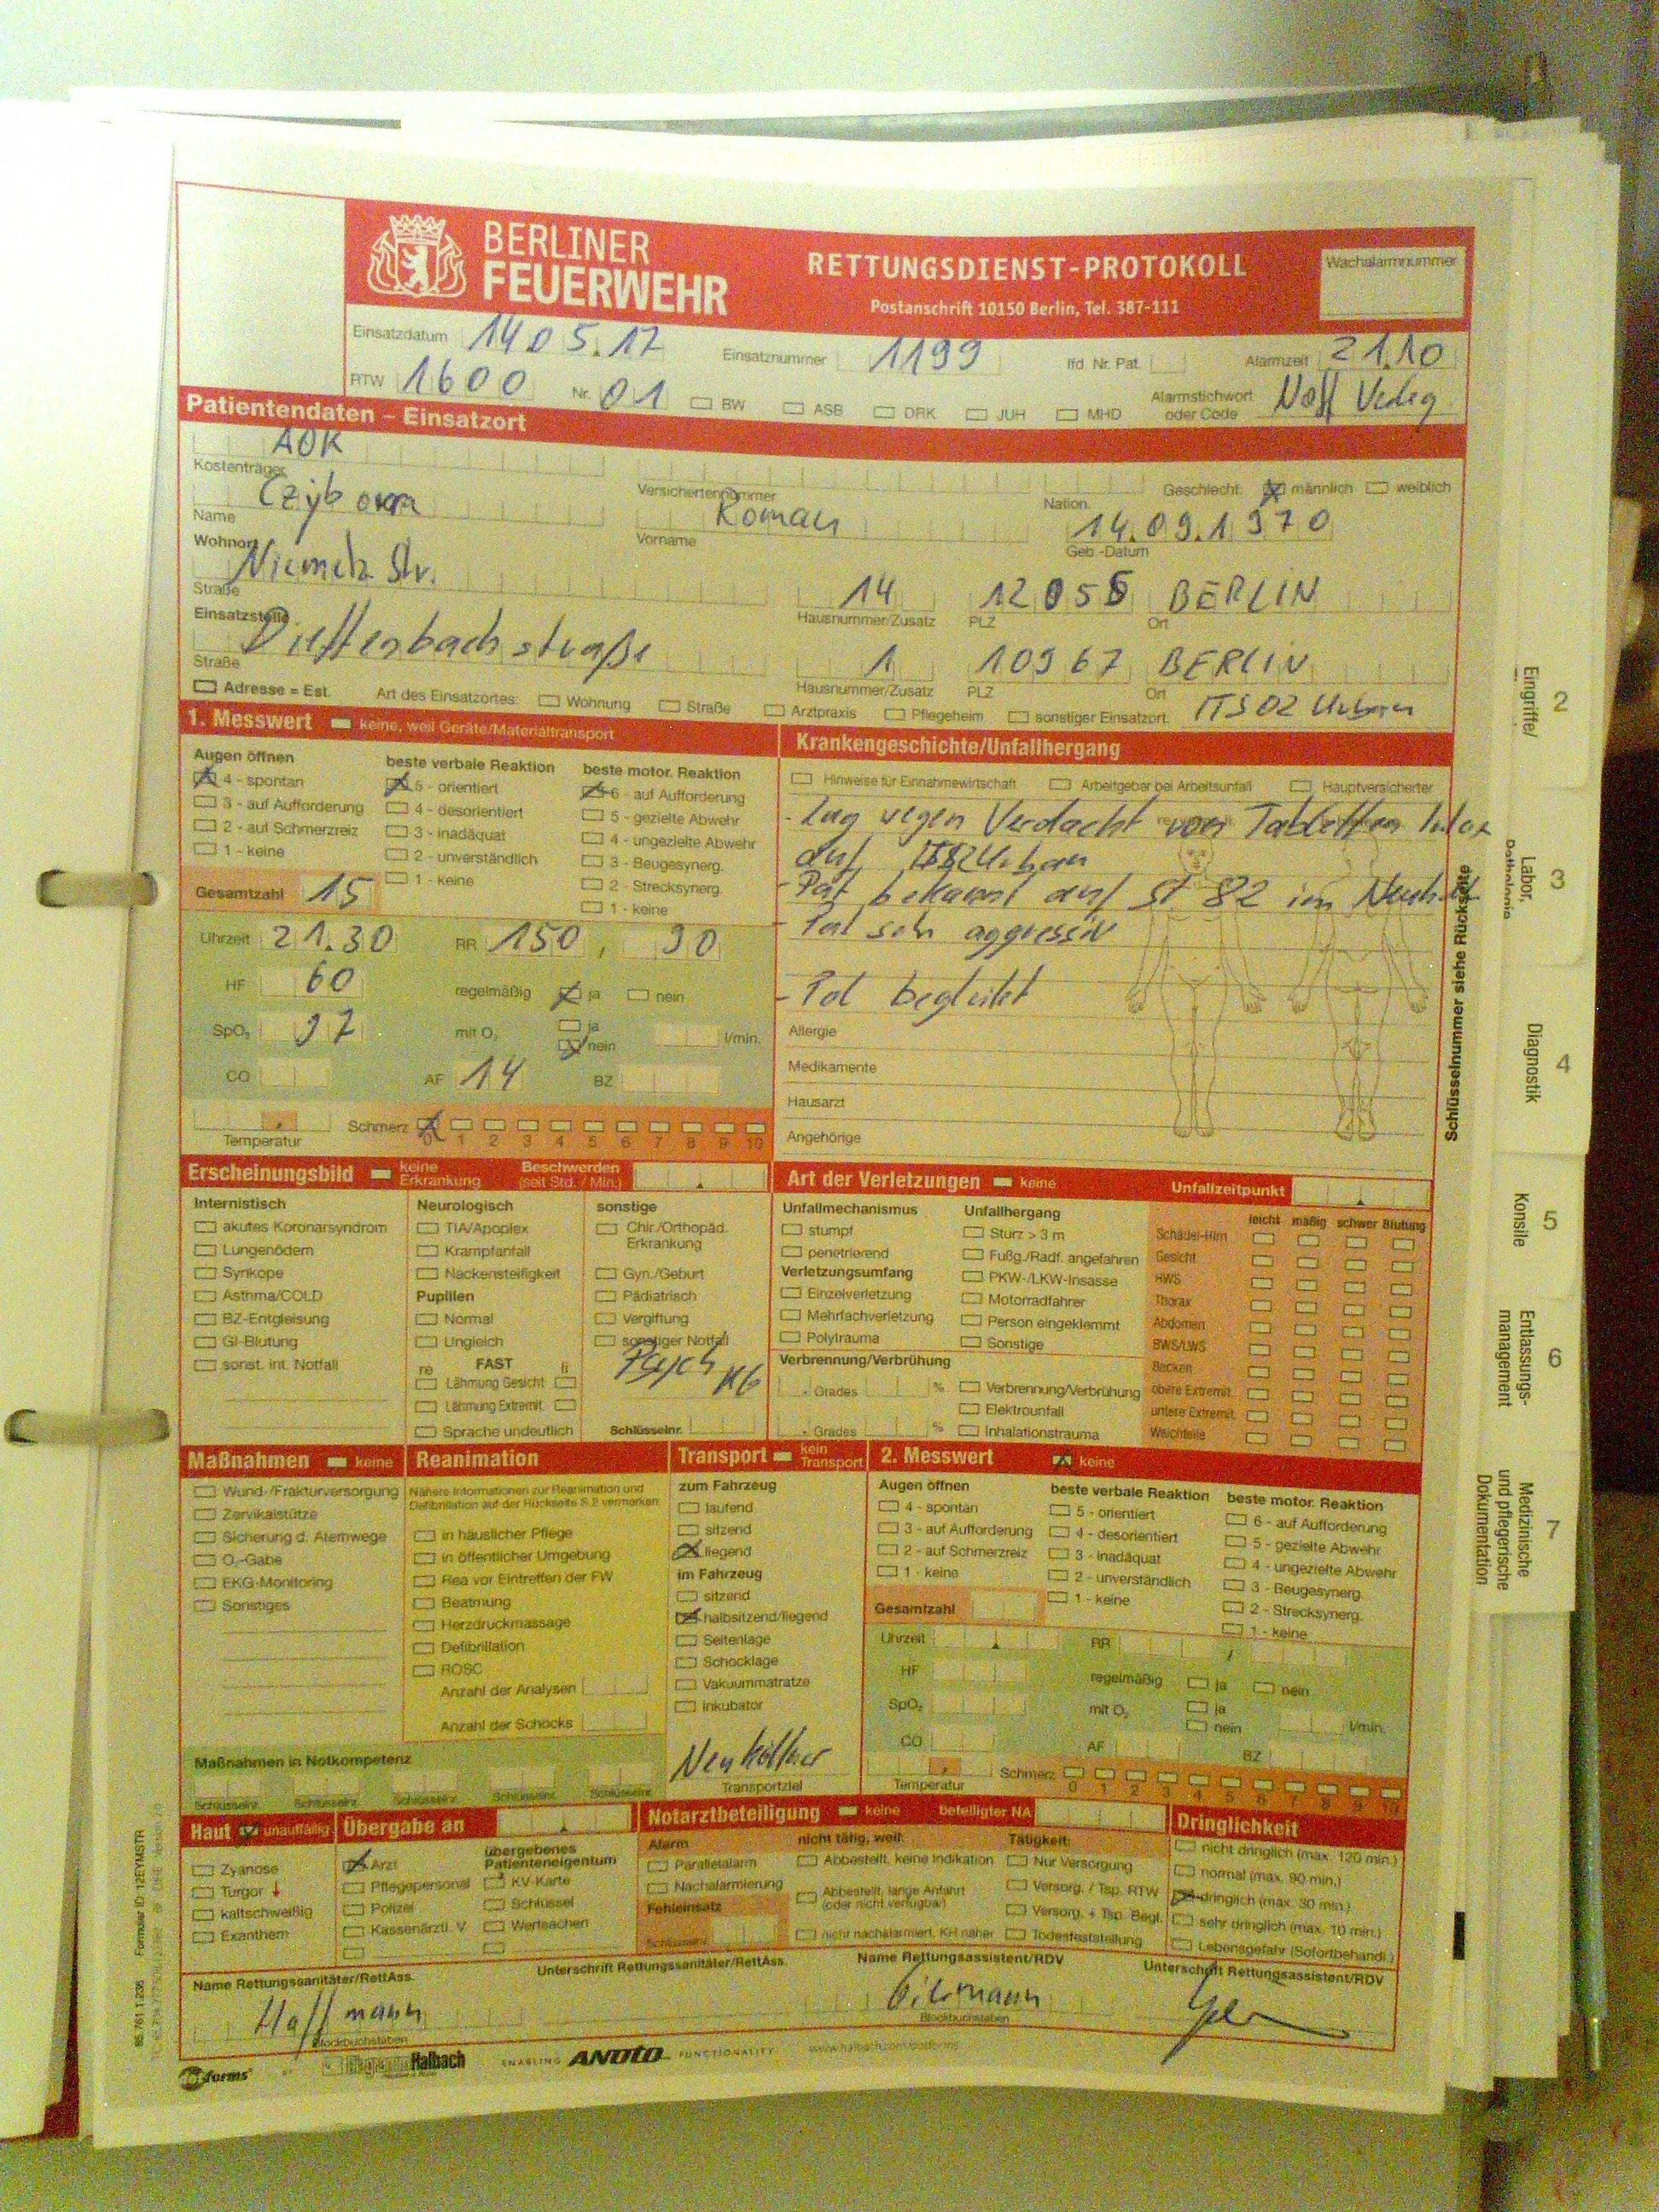 BERLINER
FEUERWEHR
RETTUNGSDIENST-PROTOKOLL
Postanschrift 10150 Berlin, Tel. 387-111
Wachalarmnummer
Einsatzdatum 14.05.17 Einsatznummer 1199 lfd. Nr. Pat. Alarmzeit 21.10
RTW 1600 Nr. 01 BW ASB DRK JUH MHD Alarmstichwort oder Code
Patientendaten – Einsatzort
AOK
Kostenträger Versichertennummer Nation. Geschlecht: männlich weiblich
Roman 14.09.1970
Name Vorname Geb.-Datum
Wohnort
Str. 14 BERLIN
Straße Hausnummer/Zusatz PLZ Ort
Einsatzstelle
1 10967 BERLIN
Straße Hausnummer/Zusatz PLZ Ort
Adresse = Est. Art des Einsatzortes: Wohnung Straße Arztpraxis Pflegeheim sonstiger Einsatzort: ITS 02 Urban
1. Messwert keine, weil Geräte/Materialtransport
Augen öffnen beste verbale Reaktion beste motor. Reaktion
4 - spontan 5 - orientiert 6 - auf Aufforderung
3 - auf Aufforderung 4 - desorientiert 5 - gezielte Abwehr
2 - auf Schmerzreiz 3 - inadäquat 4 - ungezielte Abwehr
1 - keine 2 - unverständlich 3 - Beugesynerg.
1 - keine 2 - Strecksynerg.
Gesamtzahl 15 1 - keine
Uhrzeit 21.30 RR 150 / 90
HF 60 regelmäßig ja nein
SpO₂ 97 mit O₂ ja nein l/min.
CO AF 14 BZ
Temperatur Schmerz 0 1 2 3 4 5 6 7 8 9 10
Krankengeschichte/Unfallhergang
Hinweise für Einnahmewirtschaft Arbeitgeber bei Arbeitsunfall Hauptversicherter
- Lag wegen Verdacht von Tabletten Intox
auf Urban
- Pat bekannt auf St 82 im
- Pat sehr aggressiv
- Pol begleitet
Allergie
Medikamente
Hausarzt
Angehörige
Schlüsselnummer siehe Rückseite
Erscheinungsbild keine Erkrankung Beschwerden (seit Std. / Min.)
Internistisch Neurologisch sonstige
akutes Koronarsyndrom TIA/Apoplex Chir./Orthopäd. Erkrankung
Lungenödem Krampfanfall
Synkope Nackensteifigkeit Gyn./Geburt
Asthma/COLD Pupillen Pädiatrisch
BZ-Entgleisung Normal Vergiftung
GI-Blutung Ungleich sonstiger Notfall
sonst. int. Notfall re FAST li Psych
Lähmung Gesicht
Lähmung Extremit.
Sprache undeutlich Schlüsselnr.
Art der Verletzungen keine Unfallzeitpunkt
Unfallmechanismus Unfallhergang leicht mäßig schwer Blutung
stumpf Sturz > 3 m Schädel-Hirn
penetrierend Fußg./Radf. angefahren Gesicht
Verletzungsumfang PKW-/LKW-Insasse HWS
Einzelverletzung Motorradfahrer Thorax
Mehrfachverletzung Person eingeklemmt Abdomen
Polytrauma Sonstige BWS/LWS
Verbrennung/Verbrühung Becken
. Grades % Verbrennung/Verbrühung obere Extremit.
Elektrounfall untere Extremit.
. Grades % Inhalationstrauma Weichteile
Maßnahmen keine
Wund-/Frakturversorgung
Zervikalstütze
Sicherung d. Atemwege
O₂-Gabe
EKG-Monitoring
Sonstiges
Maßnahmen in Notkompetenz
Schlüsselnr. Schlüsselnr. Schlüsselnr. Schlüsselnr. Schlüsselnr.
Reanimation
Nähere Informationen zur Reanimation und
Defibrillation auf der Rückseite S.2 vermerken
in häuslicher Pflege
in öffentlicher Umgebung
Rea vor Eintreffen der FW
Beatmung
Herzdruckmassage
Defibrillation
ROSC
Anzahl der Analysen
Anzahl der Schocks
Transport kein Transport
zum Fahrzeug
laufend
sitzend
liegend
im Fahrzeug
sitzend
halbsitzend/liegend
Seitenlage
Schocklage
Vakuummatratze
Inkubator
Transportziel
2. Messwert keine
Augen öffnen beste verbale Reaktion beste motor. Reaktion
4 - spontan 5 - orientiert 6 - auf Aufforderung
3 - auf Aufforderung 4 - desorientiert 5 - gezielte Abwehr
2 - auf Schmerzreiz 3 - inadäquat 4 - ungezielte Abwehr
1 - keine 2 - unverständlich 3 - Beugesynerg.
1 - keine 2 - Strecksynerg.
Gesamtzahl 1 - keine
Uhrzeit RR /
HF regelmäßig ja nein
SpO₂ mit O₂ ja nein l/min.
CO AF BZ
Temperatur Schmerz 0 1 2 3 4 5 6 7 8 9 10
Haut unauffällig
Zyanose
Turgor ↓
kaltschweißig
Exanthem
Übergabe an
Arzt
Pflegepersonal
Polizei
Kassenärztl. V.
übergebenes
Patienteneigentum
KV-Karte
Schlüssel
Wertsachen
Notarztbeteiligung keine beteiligter NA
Alarm nicht tätig, weil: Tätigkeit:
Parallelalarm Abbestellt, keine Indikation Nur Versorgung
Nachalarmierung Abbestellt, lange Anfahrt (oder nicht verfügbar) Versorg. / Tsp. RTW
Fehleinsatz Versorg. + Tsp. Begl.
Schlüsselnr. nicht nachalarmiert, KH näher Todesfeststellung
Dringlichkeit
nicht dringlich (max. 120 min.)
normal (max. 90 min.)
dringlich (max. 30 min.)
sehr dringlich (max. 10 min.)
Lebensgefahr (Sofortbehandl.)
Name Rettungssanitäter/RettAss. Unterschrift Rettungssanitäter/RettAss. Name Rettungsassistent/RDV Unterschrift Rettungsassistent/RDV
Hoffmann
Blockbuchstaben Blockbuchstaben
forms Halbach ENABLING ANOTO FUNCTIONALITY
65 761 1.236 Formular ID: 12EYMSTR
Eingriffe/ 2
Labor, 3
Diagnostik 4
Konsile 5
Entlassungs-
management 6
Medizinische
und pflegerische
Dokumentation 7